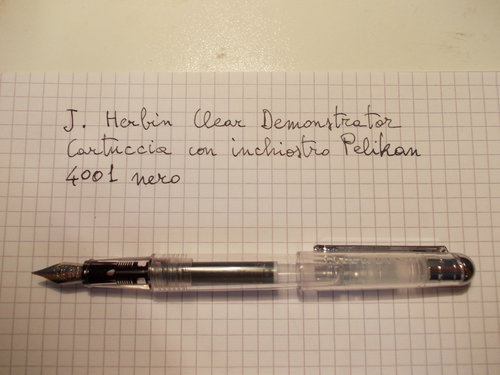 J. Herbin Clear Demonstrator
Cartuccia con inchiostro Pelikan
4001 nero